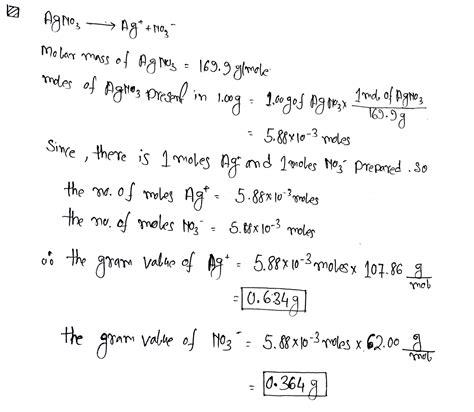 AgNO₃ ⟶ Ag⁺ + NO₃⁻
Molar mass of AgNO₃ = 169.9 g/mole
moles of AgNO₃ present in 1.00g = 1.00 g of AgNO₃ x 1 mol of AgNO₃ / 169.9 g
= 5.88x10⁻³ moles
Since, there is 1 moles Ag⁺ and 1 moles NO₃⁻ prepared. so
the no. of moles Ag⁺ = 5.88x10⁻³ moles
the no. of moles NO₃⁻ = 5.88x10⁻³ moles
∴ the gram value of Ag⁺ = 5.88x10⁻³ moles x 107.86 g/mol
= 0.634g
the gram value of NO₃⁻ = 5.88x10⁻³ moles x 62.00 g/mol
= 0.364 g